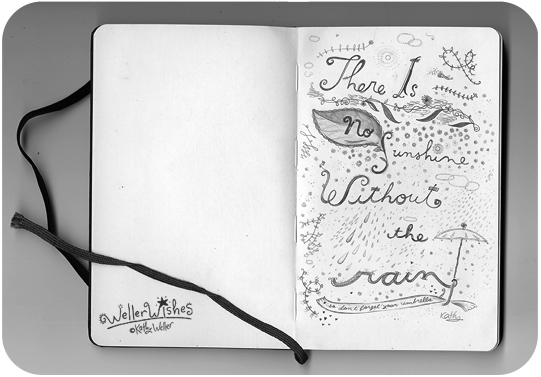 WellerWishes
©Kathy Weller
There Is
No
Sunshine
Without
the
rain
so don't forget your umbrella
Kathy